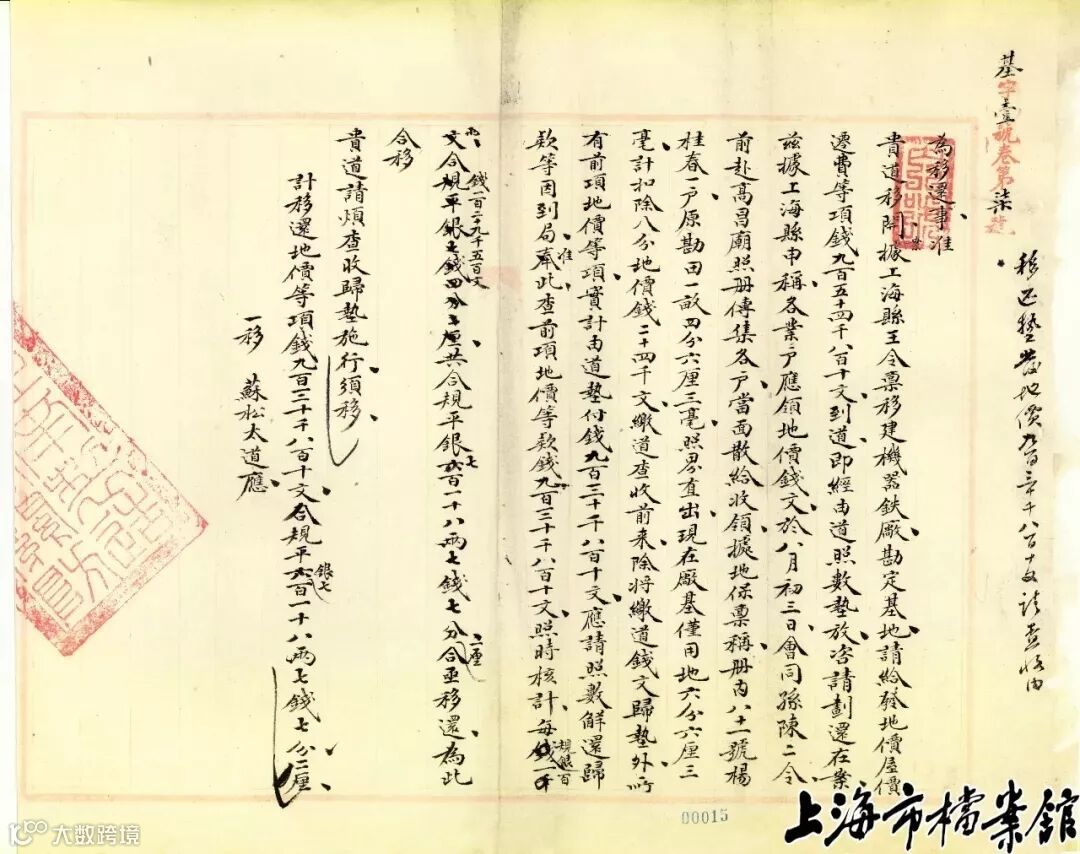 基字壹號卷第柒號
移還墊發地價九百三十千八百十文請查收由
為移還事准
貴道移開據上海縣王令稟移建機器鉄廠勘定基地請給發地價屋價
遷費等項錢九百五十四千八百十文到道即經由道照數墊放咨請劃還在案
茲據上海縣申稱各業户應領地價錢文於八月初三日會同孫陳二令
前赴高昌廟照册傳集各户當面散給收領據地保稟稱册内八十一號楊
桂春一户原勘田一畝四分六厘三毫照界查出現在廠基僅用地六分六厘三
毫計扣除八分地價錢二十四千文繳道查收前来除將繳道錢文歸墊外所
有前項地價等項實計由道墊付錢九百三十千八百十文應請照數解還歸
欵等因到局准此查前項地價等欵錢九百三十千八百十文照時核計每規銀百
兩錢百二十九千五百文
合規平銀七百一十八兩七錢七分二厘合亟移還為此
合移
貴道請煩查收歸墊施行須移
計移還地價等項錢九百三十千八百十文合規平銀七百一十八兩七錢七分二厘
一移 蘇松太道應
00015
上海市檔案館
大数跨境